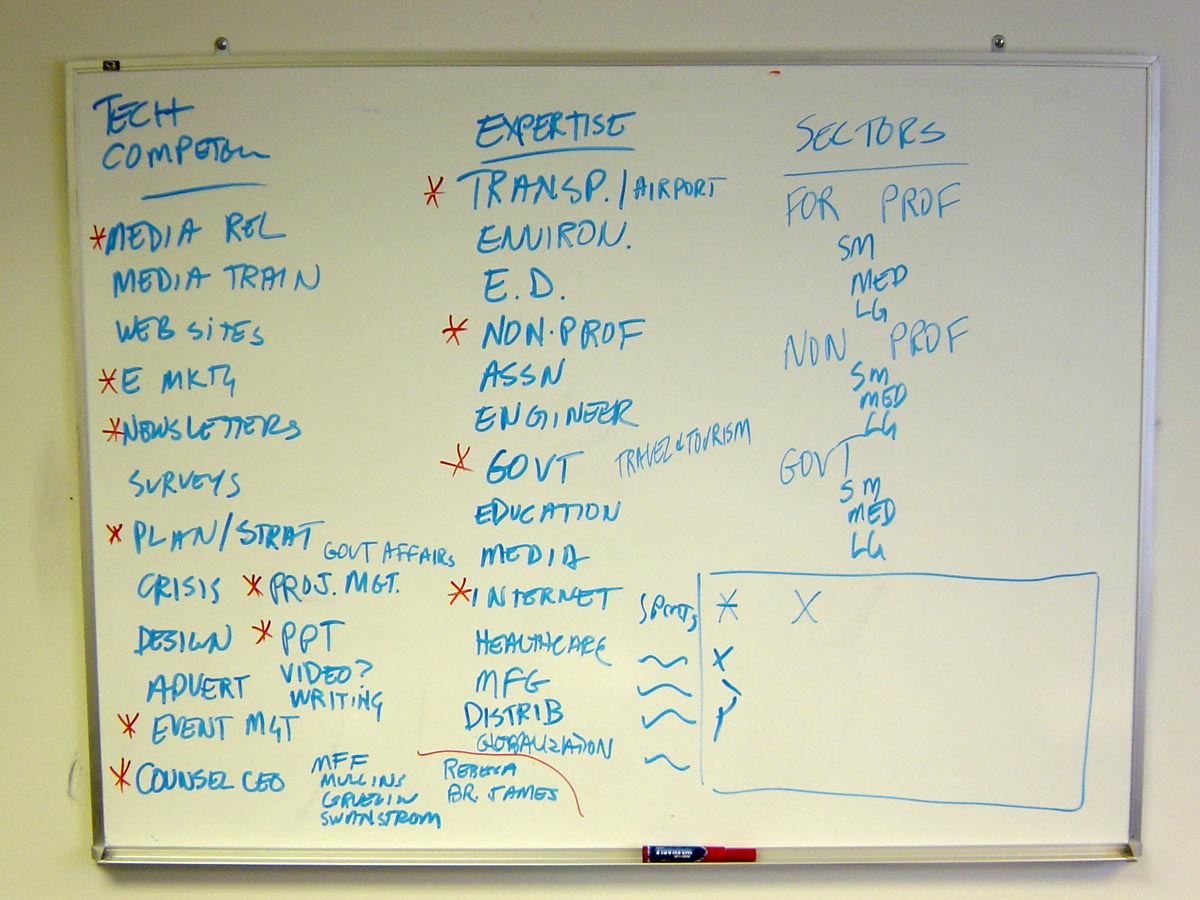 TECH
COMPETEN
* MEDIA REL
MEDIA TRAIN
WEB SITES
* E MKTG
* NEWSLETTERS
SURVEYS
* PLAN/STRAT
GOVT AFFAIRS
CRISIS * PROJ. MGT.
DESIGN * PPT
ADVERT VIDEO?
WRITING
* EVENT MGT
* COUNSEL CEO
MFF
MULLINS
SWANSTROM
EXPERTISE
* TRANSP./AIRPORT
ENVIRON.
E.D.
* NON-PROF
ASSN
ENGINEER
* GOVT TRAVEL & TOURISM
EDUCATION
MEDIA
* INTERNET
HEALTHCARE
MFG
DISTRIB
GLOBALIZATION
BR. JAMES
SECTORS
FOR PROF
SM
MED
LG
NON PROF
SM
MED
LG
GOVT
SM
MED
LG
SPORTS
* X
X